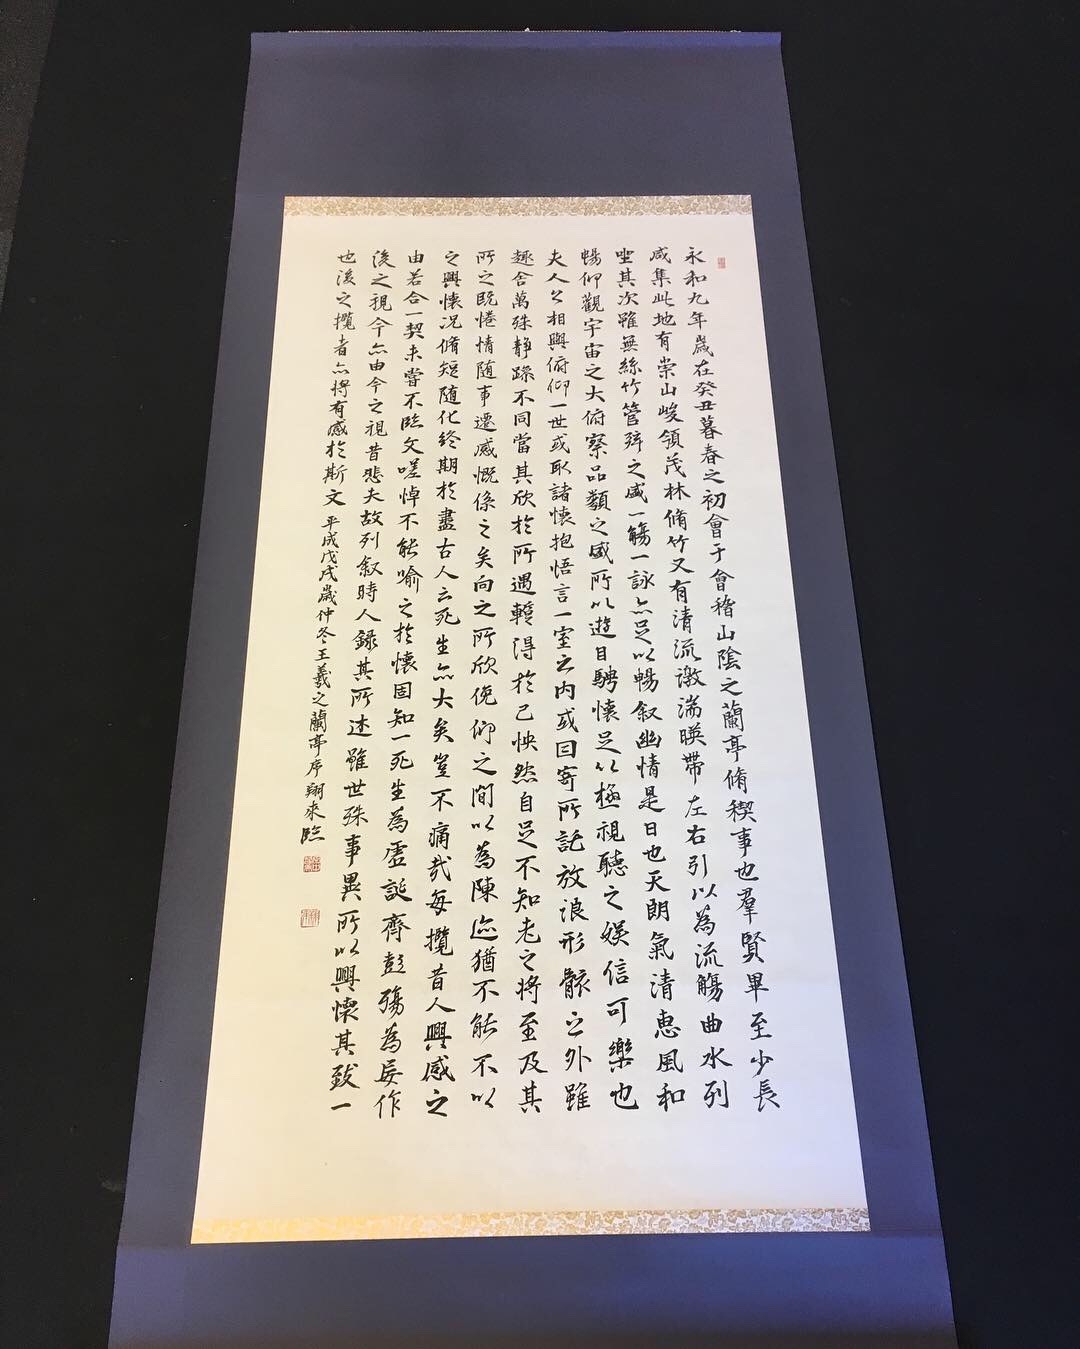 永和九年歳在癸丑暮春之初會于會稽山陰之蘭亭脩稧事也羣賢畢至少長
咸集此地有崇山峻領茂林脩竹又有清流激湍暎帶左右引以為流觴曲水列
坐其次雖無絲竹管弦之盛一觴一詠亦足以暢叙幽情是日也天朗氣清惠風和
暢仰觀宇宙之大俯察品類之盛所以遊目騁懐足以極視聽之娯信可樂也
夫人之相與俯仰一世或取諸懐抱悟言一室之内或因寄所託放浪形骸之外雖
趣舎萬殊静躁不同當其欣於所遇蹔得於己怏然自足不知老之将至及其
所之既惓情随事遷感慨係之矣向之所欣俛仰之間以為陳迹猶不能不以
之興懐况脩短随化終期於盡古人云死生亦大矣豈不痛哉毎攬昔人興感之
由若合一契未嘗不臨文嗟悼不能喻之於懐固知一死生為虚誕齊彭殤為妄作
後之視今亦由今之視昔悲夫故列叙時人録其所述雖世殊事異所以興懐其致一
也後之攬者亦将有感於斯文 平成戊戌歳仲冬王羲之蘭亭序翔来臨